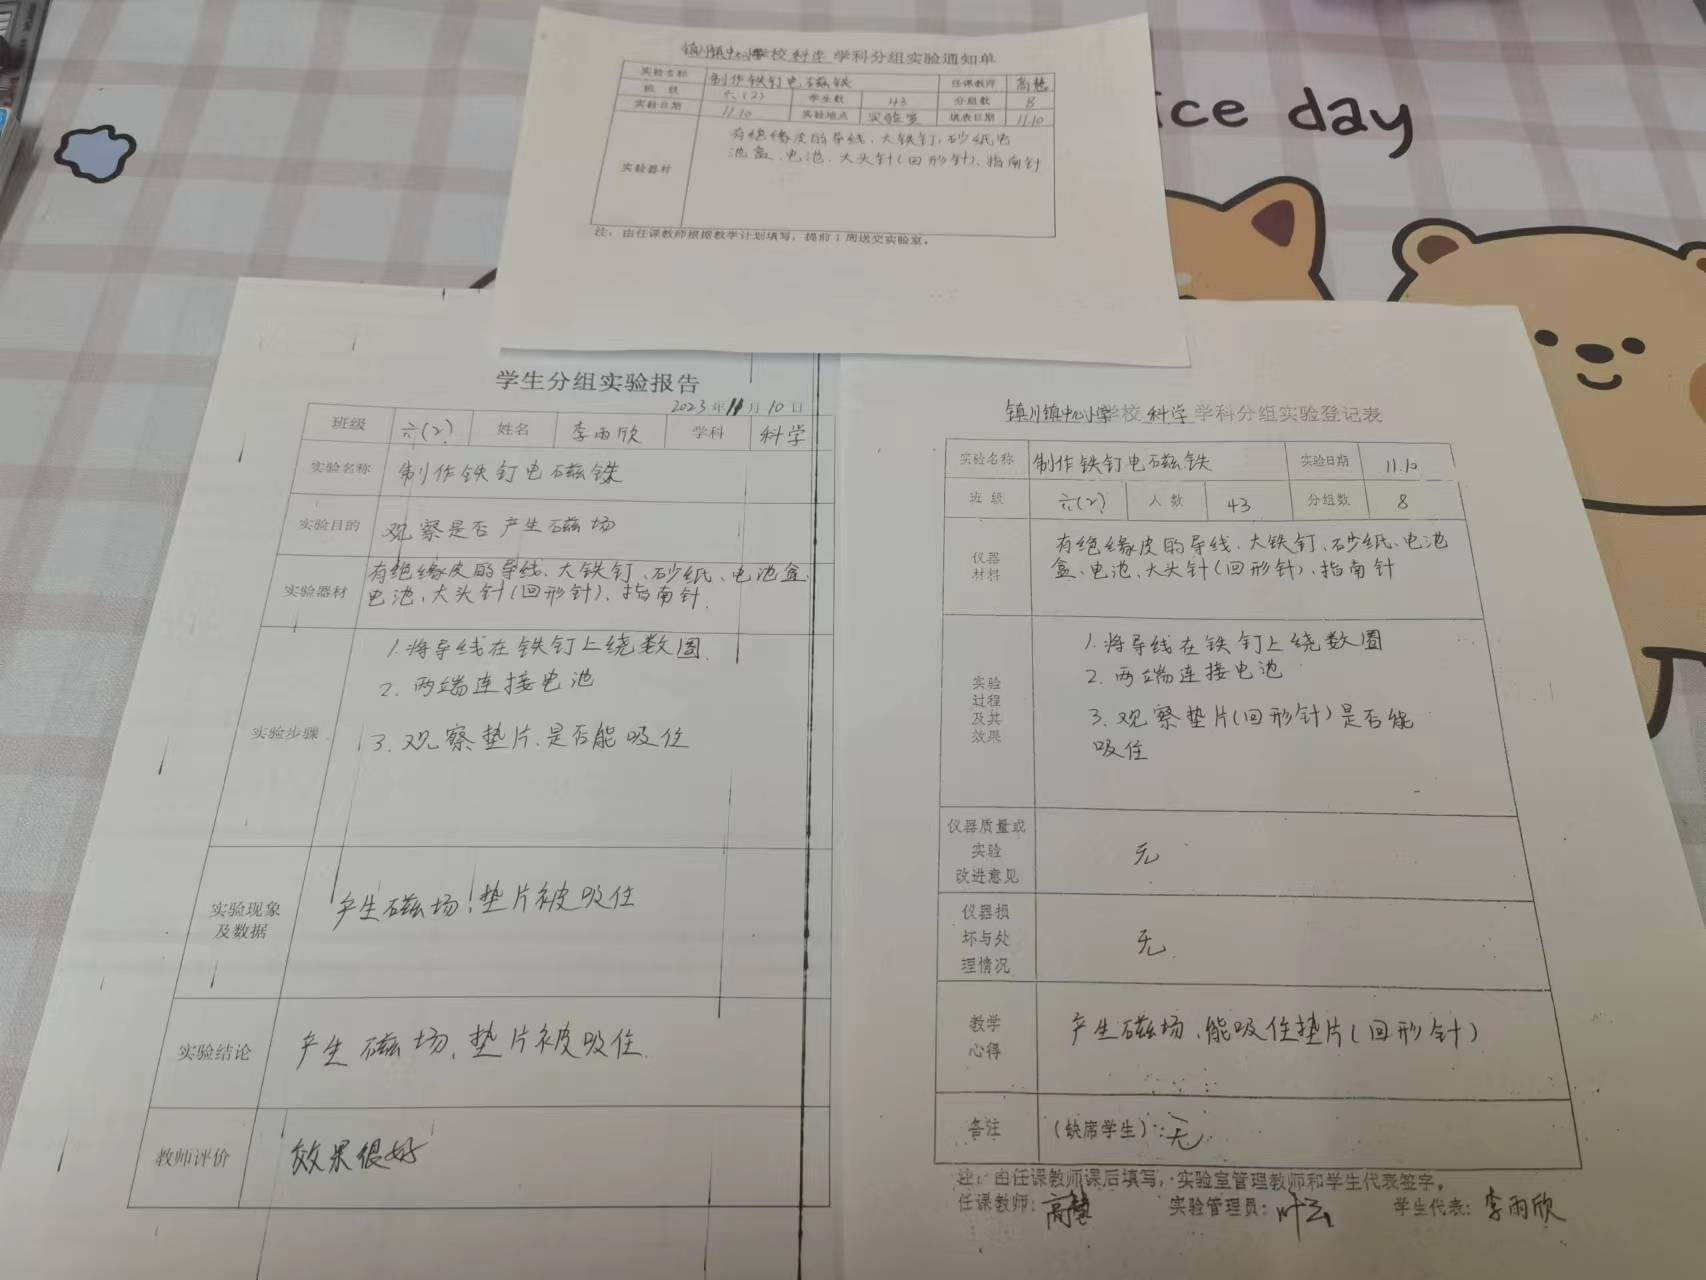 镇川镇中心小学学校 科学 学科分组实验通知单
实验名称 制作铁钉电磁铁 任课教师 高慧
班 级 六(2) 学生数 43 分组数 8
实验日期 11.10 实验地点 实验室 填表日期 11.10
实验器材
有绝缘皮的导线、大铁钉、砂纸电
池盒、电池、大头针(回形针)、指南针
注：由任课教师根据教学计划填写，提前1周送交实验室。
ice day
学生分组实验报告
2023年11月10日
班级 六(2) 姓名 李雨欣 学科 科学
实验名称 制作铁钉电磁铁
实验目的 观察是否产生磁场
实验器材
有绝缘皮的导线、大铁钉、砂纸、电池盒、
电池、大头针(回形针)、指南针.
实验步骤
1.将导线在铁钉上绕数圈.
2.两端连接电池
3.观察垫片.是否能吸住
实验现象
及数据
产生磁场!垫片被吸住
实验结论 产生磁场、垫片被吸住.
教师评价 效果很好
镇川镇中心小学学校 科学 学科分组实验登记表
实验名称 制作铁钉电磁铁 实验日期 11.10
班 级 六(2) 人 数 43 分组数 8
仪器
材料
有绝缘皮的导线、大铁钉、砂纸、电池
盒、电池、大头针(回形针)、指南针
实验
过程
及其
效果
1.将导线在铁钉上绕数圈
2.两端连接电池
3.观察垫片(回形针)是否能
吸住
仪器质量或
实验
改进意见
无
仪器损
坏与处
理情况
无
教学
心得
产生磁场、能吸住垫片(回形针)
备注 (缺席学生)：无
注：由任课教师课后填写，实验室管理教师和学生代表签字。
任课教师：高慧 实验管理员：叶云 学生代表：李雨欣